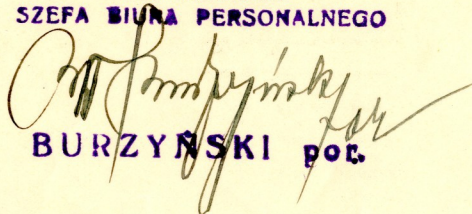 SZEFA BIURA PERSONALNEGO
Burzyński por
BURZYŃSKI por.